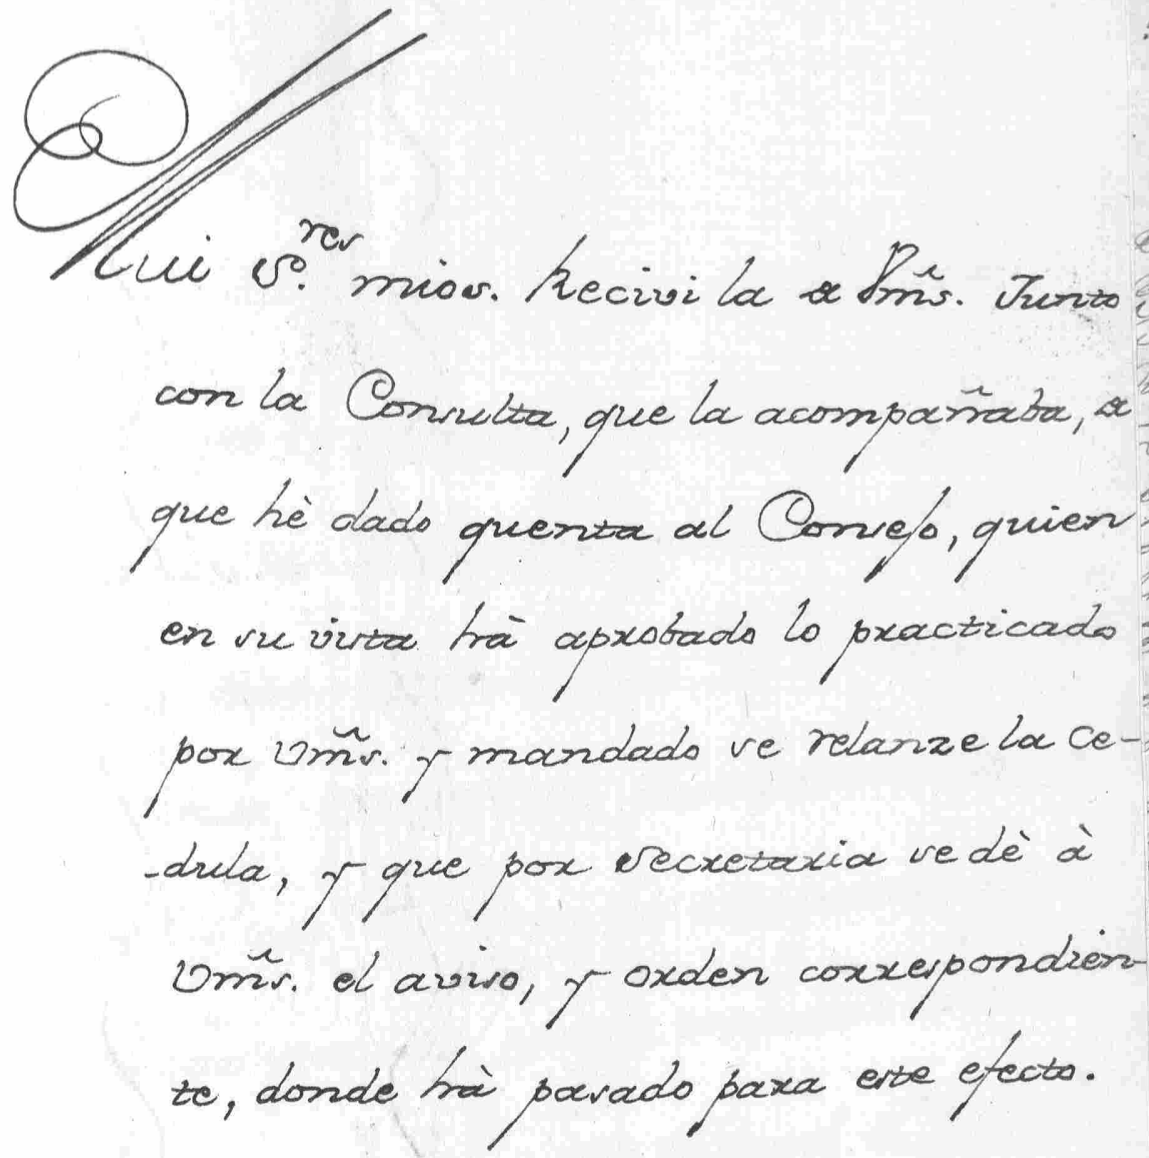 Mui S.res mios. Recivi la de Vms. Junto
con la Consulta, que la acompañaba, de
que hè dado quenta al Consejo, quien
en su vista hà aprobado lo practicado
por Vms. y mandado se relanze la Ce-
-dula, y que por Secretaria se dè à
Vms. el aviso, y orden correspondien-
te, donde hà pasado para este efecto.